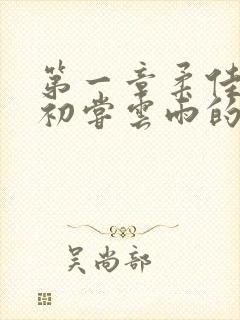 第一章柔佳
初尝云雨的
吴尚部